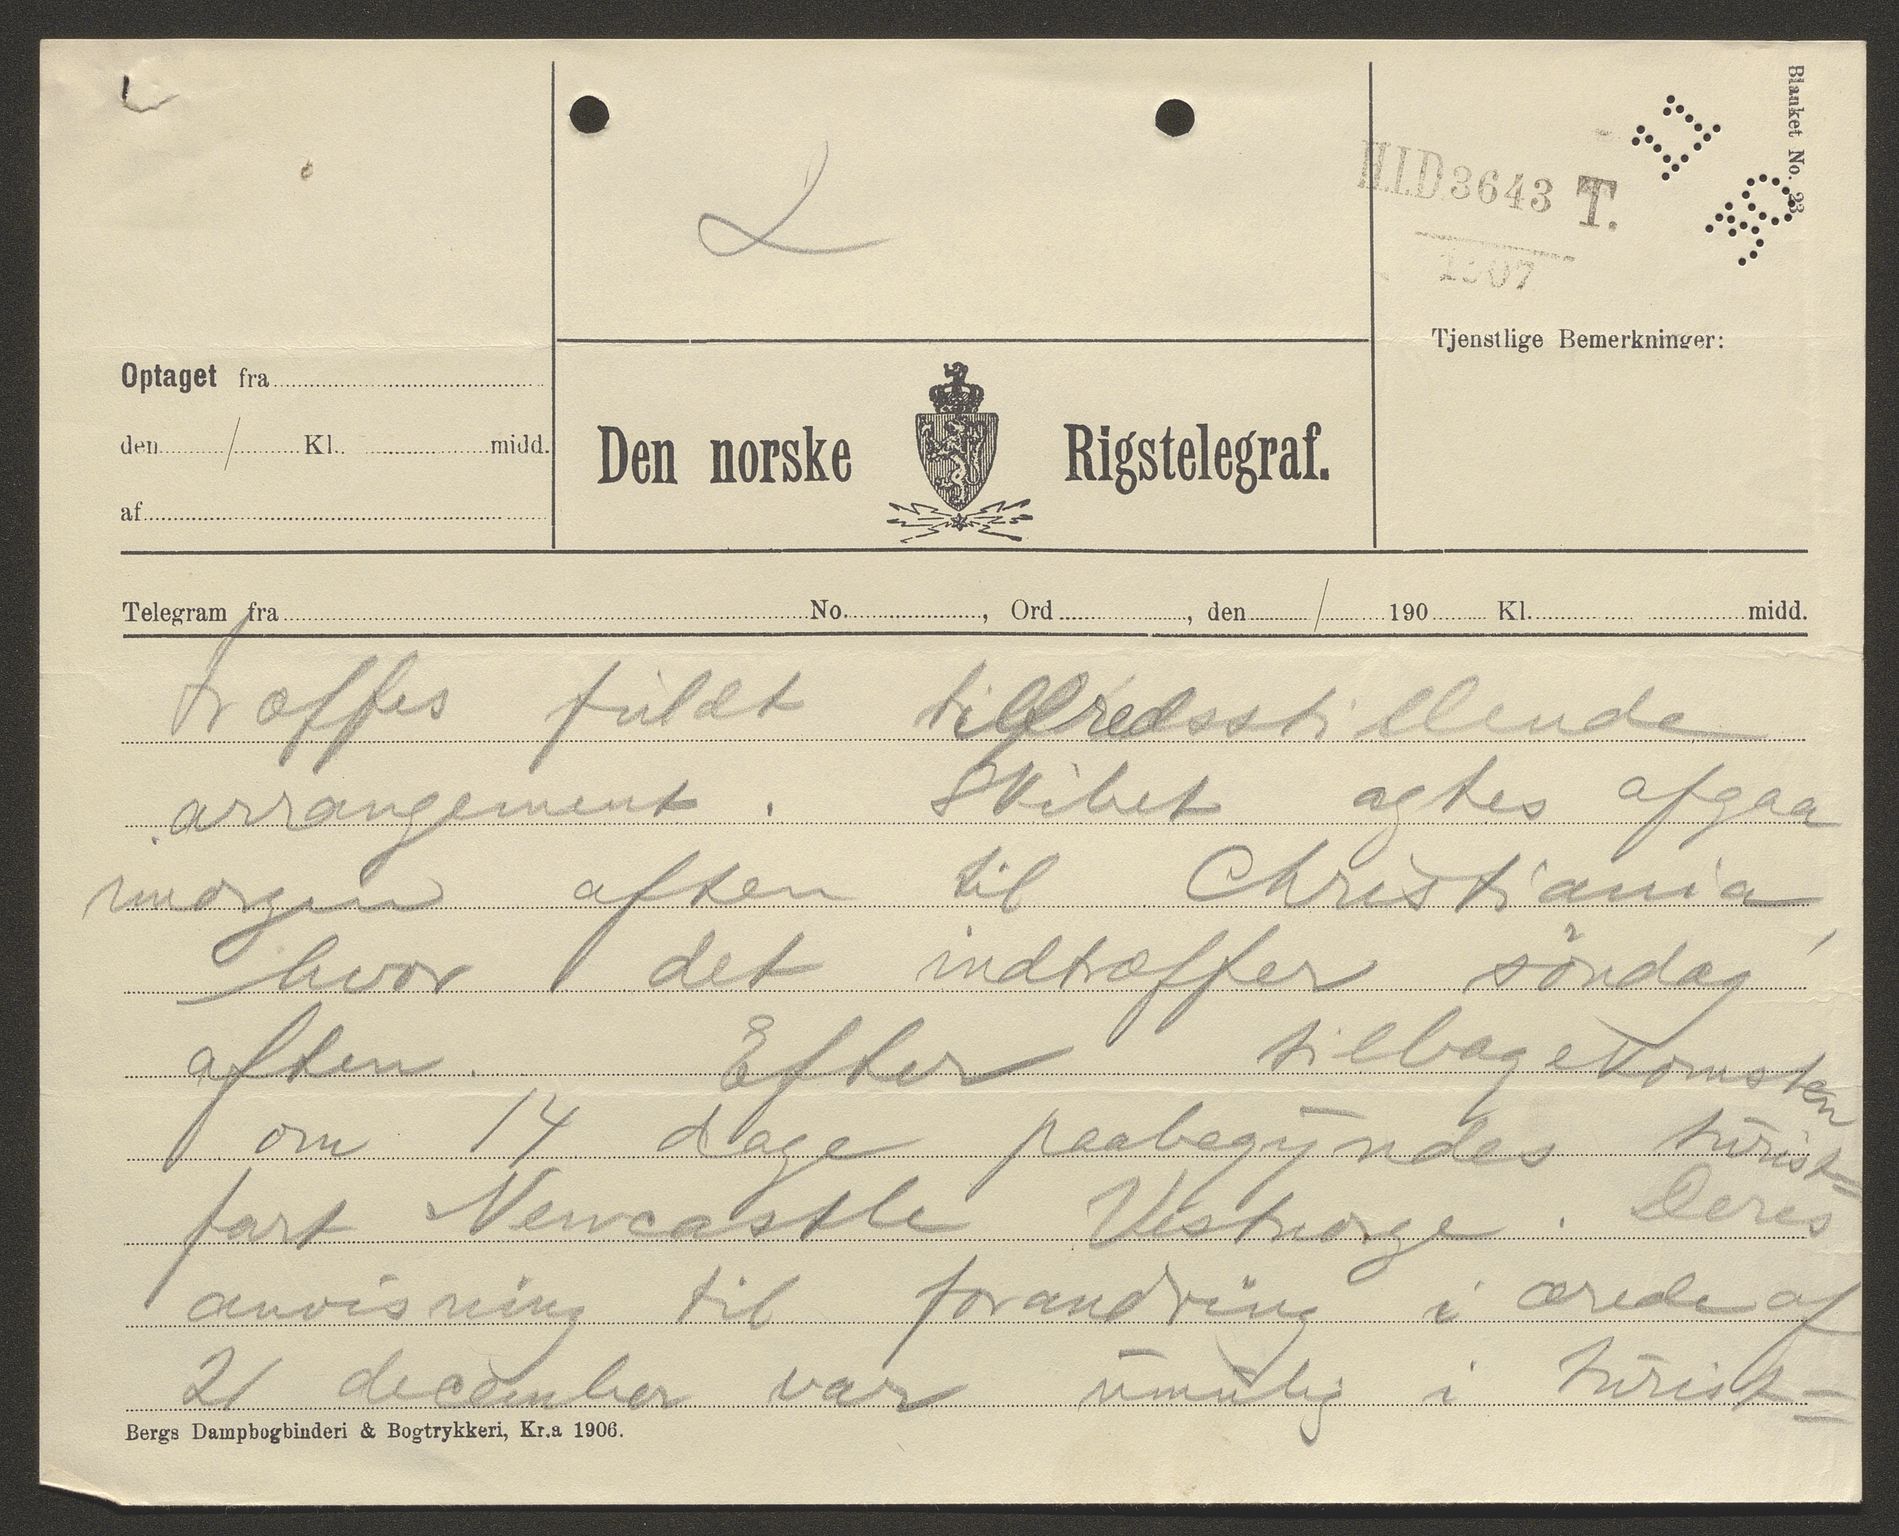 Blanket No. 23
2
H.I.D 3643 T.
1907
Tjenstlige Bemerkninger:
Optaget fra
den / Kl. midd.
af
Den norske Rigstelegraf.
Telegram fra No. , Ord , den / 190 Kl. midd.
træffes fuldt tilfredsstillende
arrangement. Skibet agtes afgaa
imorgen aften til Christiania,
hvor det indtræffer söndag
aften. Efter tilbagekomsten
om 14 dage paabegyndes turist=
fart Newcastle Vestnorge. Deres
anvisning til forandring i ærede af
21 december var umulig i turist=
Bergs Dampbogbinderi & Bogtrykkeri, Kr.a 1906.